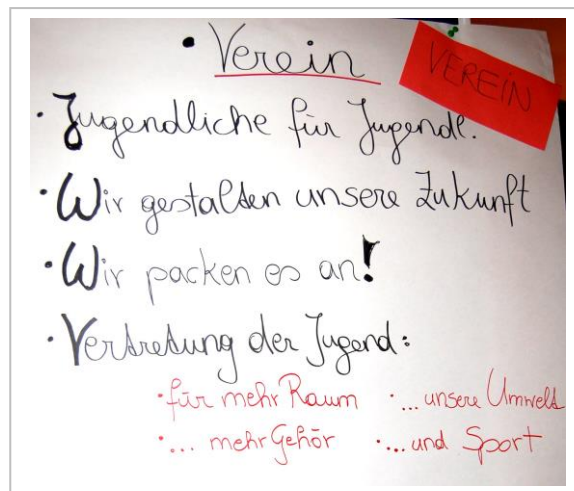 • Verein
VEREIN
• Jugendliche für Jugendl.
• Wir gestalten unsere Zukunft
• Wir packen es an!
• Vertretung der Jugend:
• für mehr Raum • ... unsere Umwelt
• ... mehr Gehör • ... und Sport